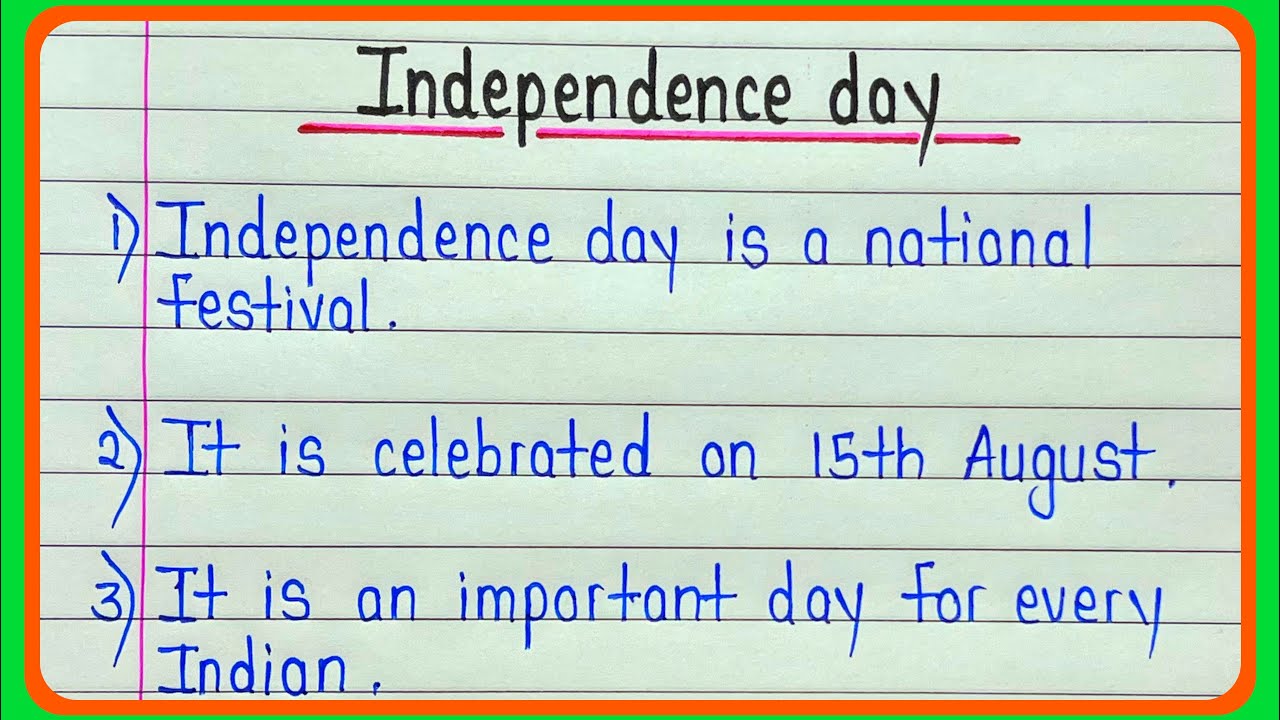 Independence day
1) Independence day is a national
festival.
2) It is celebrated on 15th August.
3) It is an important day for every
Indian.